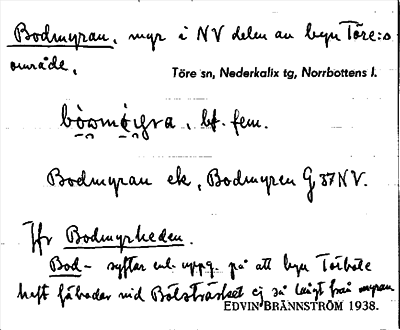 Bodmyran, myr i NV delen av byn Töre:s
område.
Töre sn, Nederkalix tg, Norrbottens l.
bf. fem.
Bodmyran ek, Bodmyren G 37 NV.
Jfr Bodmyrheden.
Bod- syftar enl. uppg. på att byn Törböle
haft fäbodar vid Bölsträsket ej så långt från myran
EDVIN BRÄNNSTRÖM 1938.